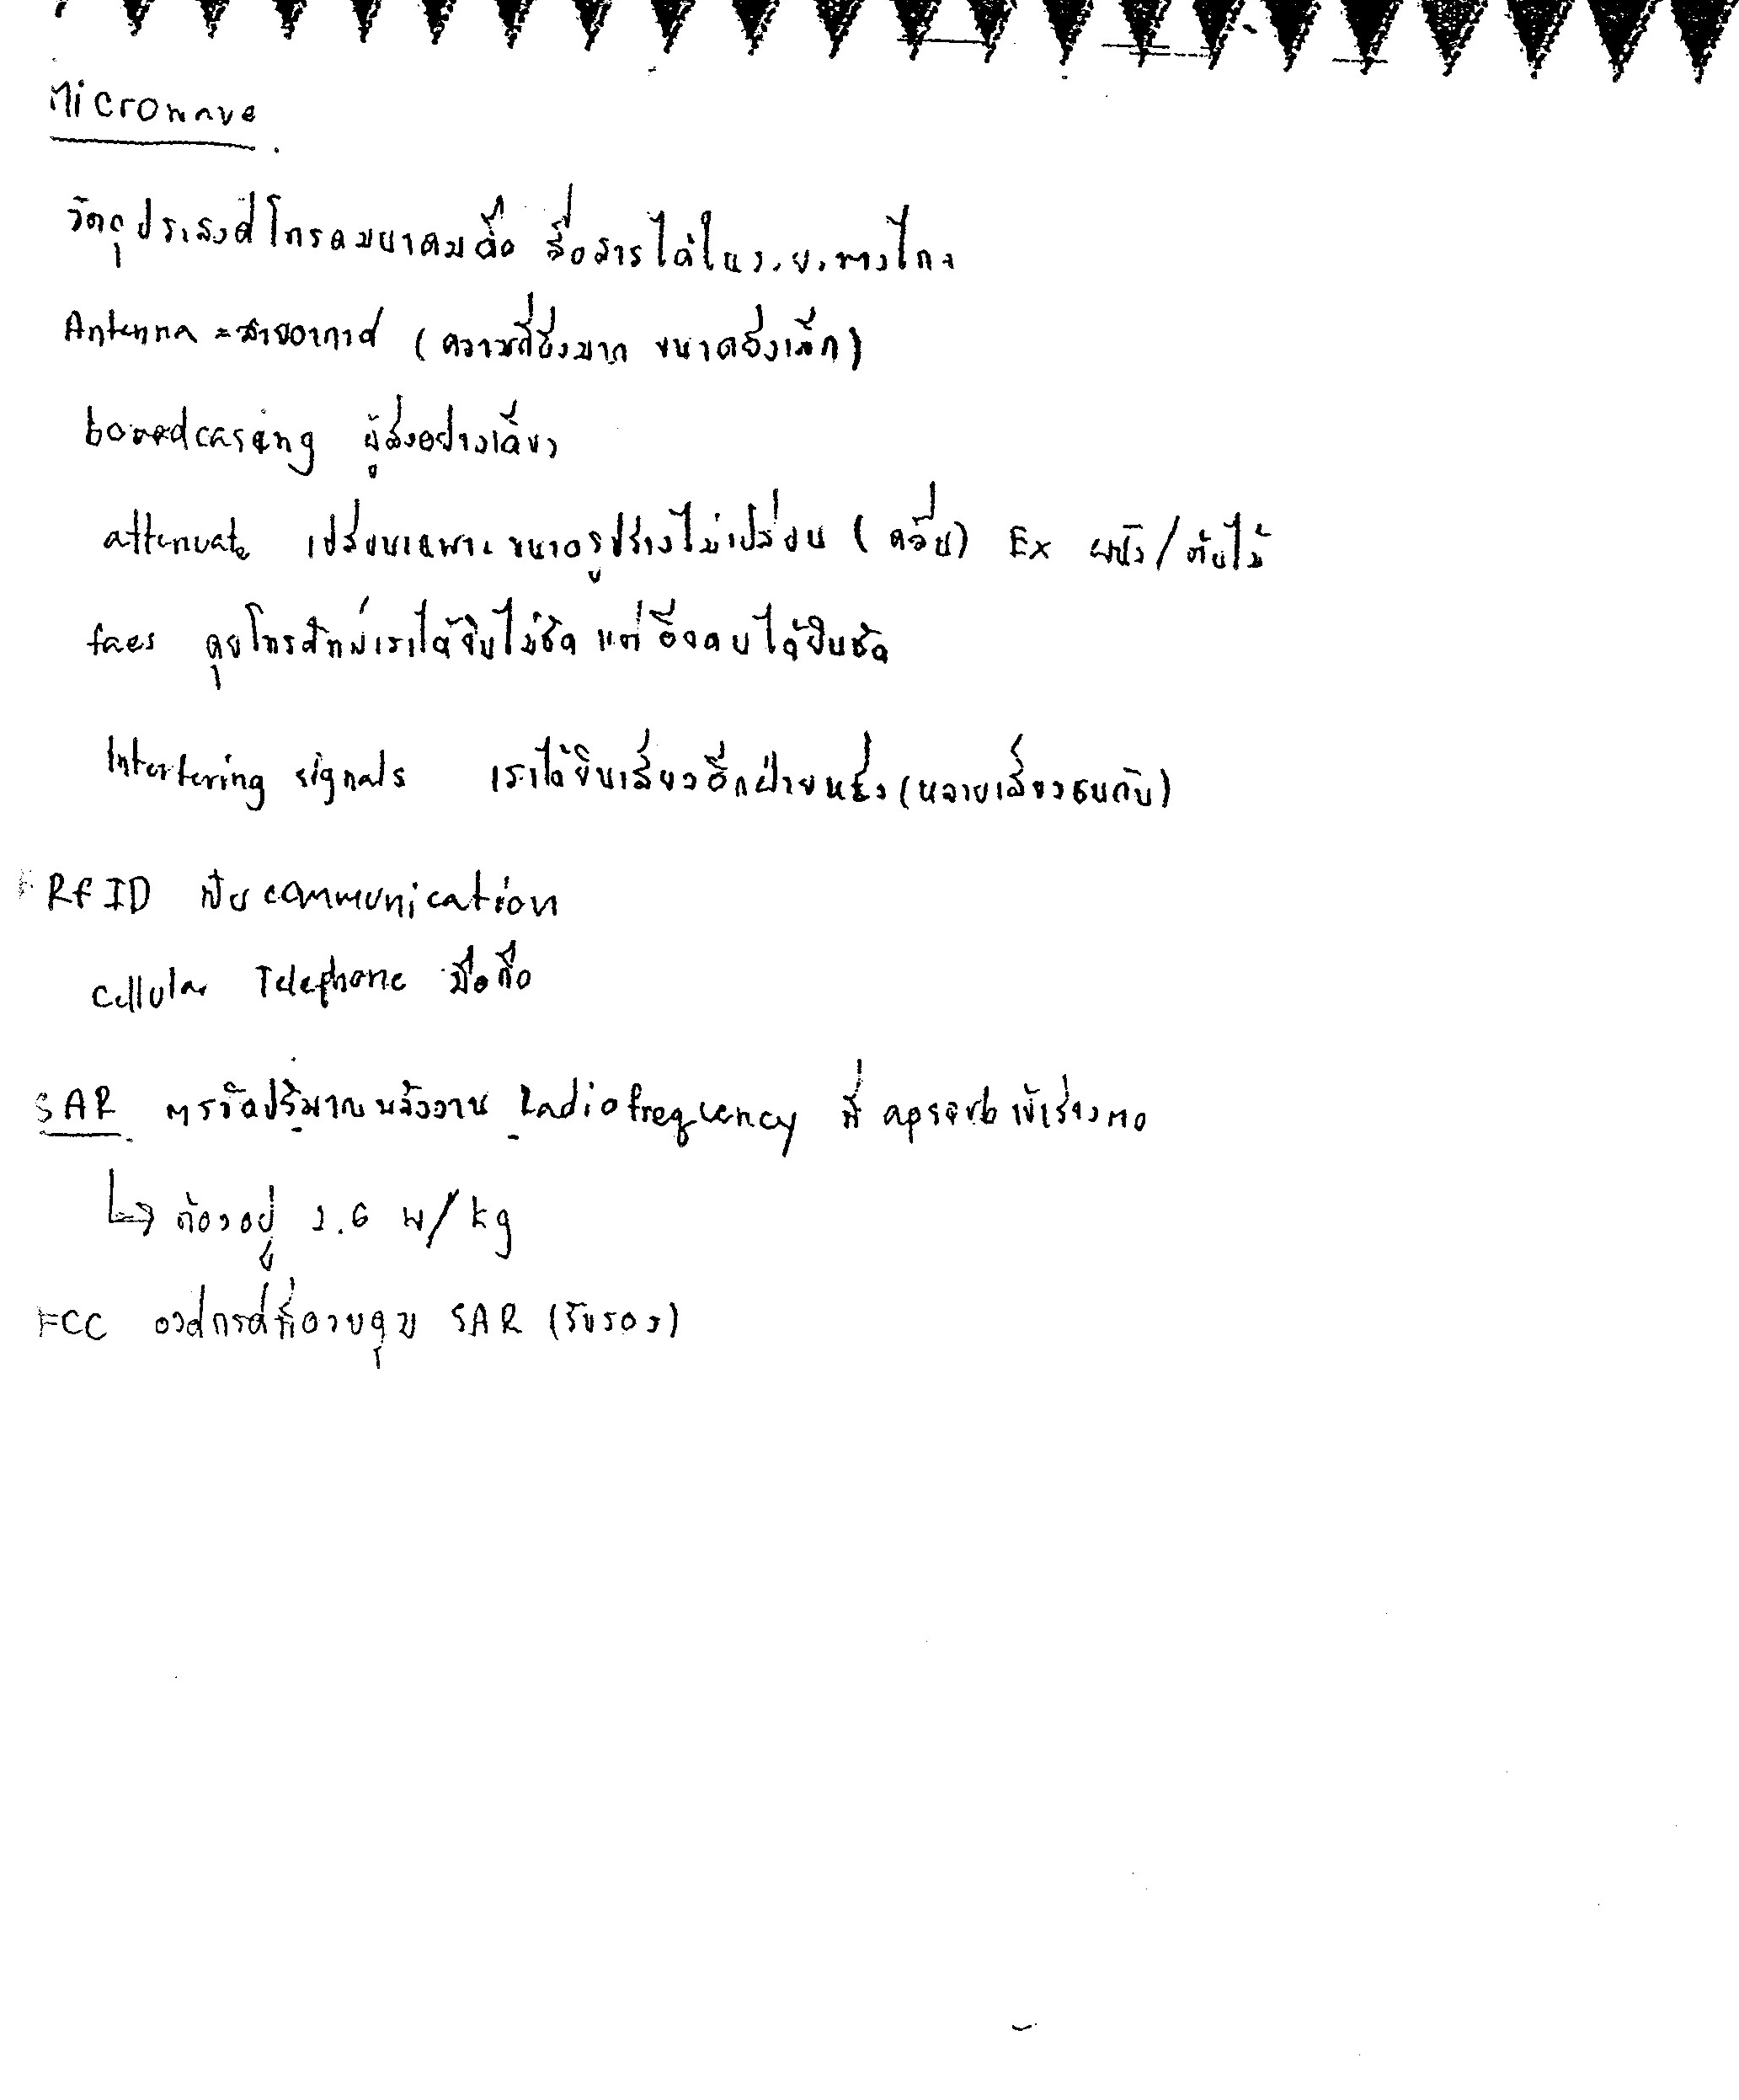 Microwave
วัตถุประสงค์โทรคมนาคมคือ สื่อสารได้ในระยะทางไกล
Antenna = สายอากาศ (ความถี่ยิ่งมาก ขนาดยิ่งเล็ก)
boardcasing ผู้ส่งอย่างเดียว
attenuate เปลี่ยนเฉพาะขนาดรูปร่างไม่เปลี่ยน (คลื่น) Ex ผนัง/ต้นไม้
faes คุยโทรศัพท์เราได้ยินไม่ชัด แต่อีกคนได้ยินชัด
Intertering signals เราได้ยินเสียงอีกฝ่ายหนึ่ง (หลายเสียงชนกัน)
RFID เป็น communication
cellular Telephone มือถือ
SAR ตรวจวัดปริมาณพลังงาน Radiofrequency ที่ apsorb เข้าร่างกาย
↳ ต้องอยู่ 1.6 W/kg
FCC องค์กรที่ควบคุม SAR (รับรอง)